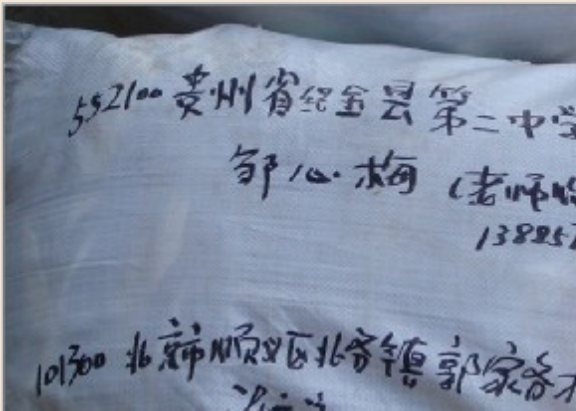 552100 贵州省织金县第二中学
邹心梅 (老师收
138857
101300 北京市顺义区北务镇郭家务村